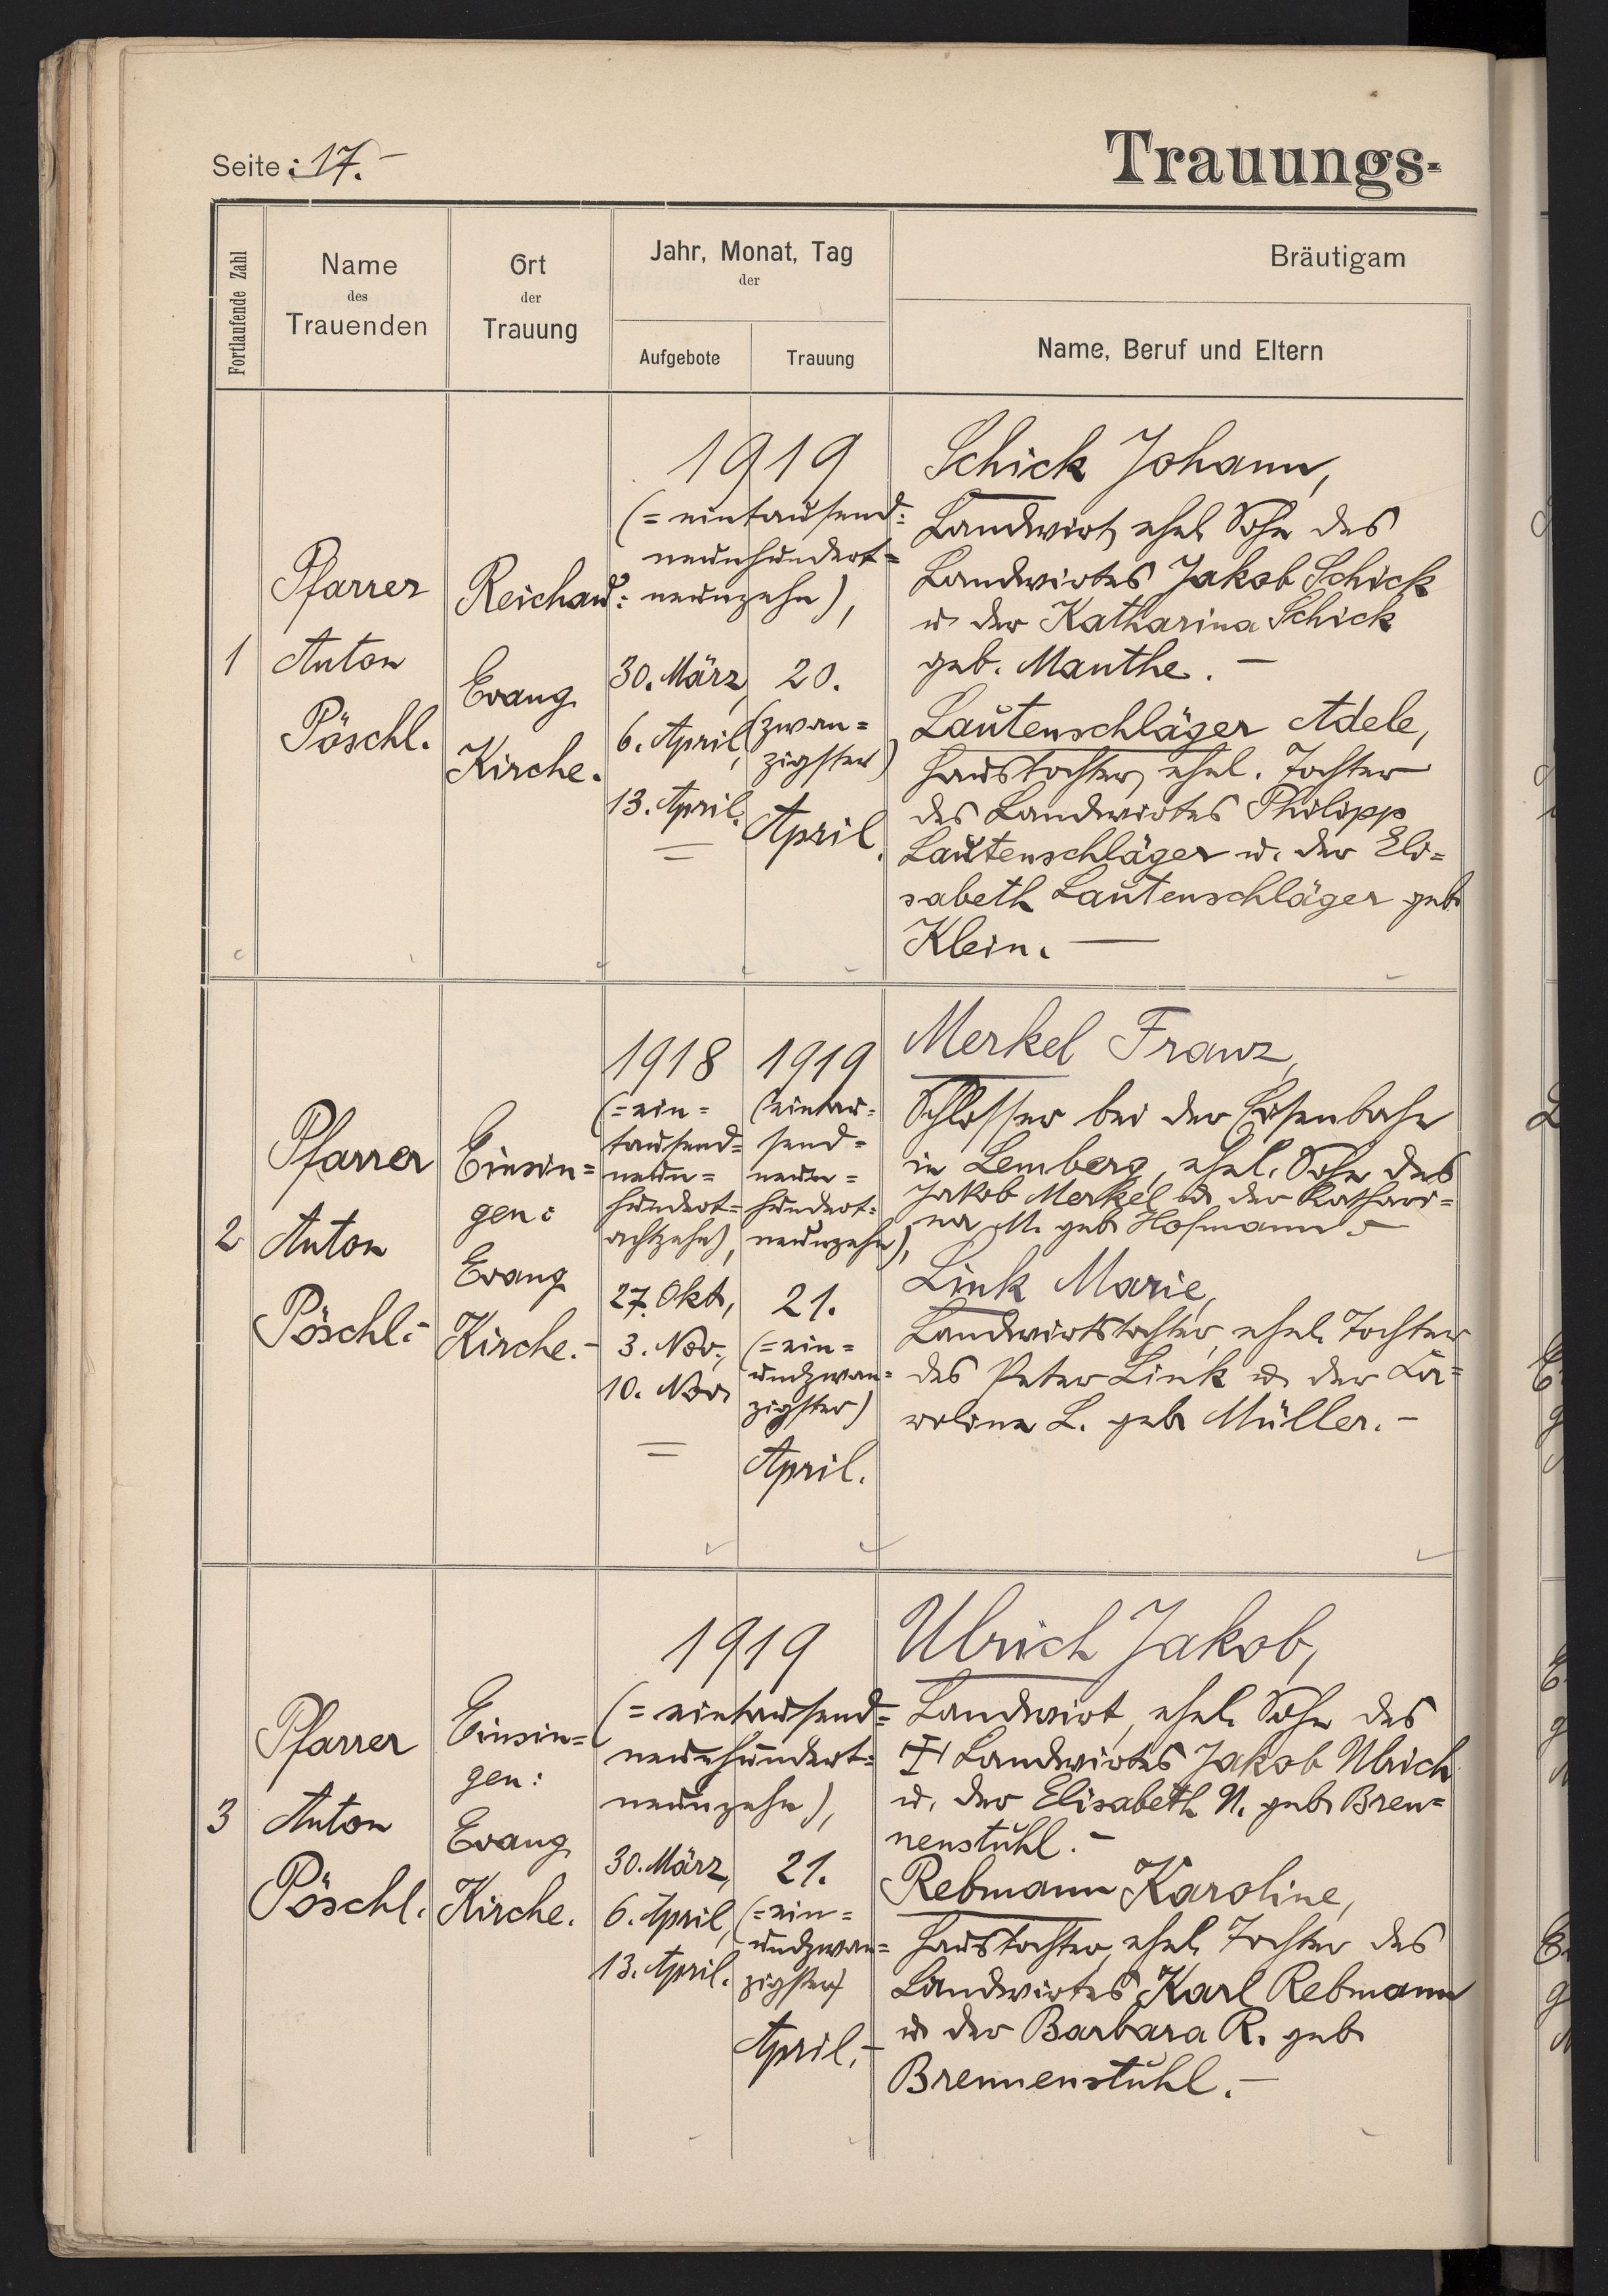 Seite: 17.-
Trauungs-
Fortlaufende Zahl
Name
des
Trauenden
Ort
der
Trauung
Jahr, Monat, Tag
der
Aufgebote
Trauung
Bräutigam
Name, Beruf und Eltern
1
Pfarrer
Anton
Pöschl.
Reichau:
Evang.
Kirche.
1919
(= eintausend=
neunhundert=
neunzehn),
30. März,
6. April,
13. April.
20.
(zwan=
zigster)
April.
Schick Johann,
Landwirt, ehel. Sohn des
Landwirtes Jakob Schick
u. der Katharina Schick
geb. Manthe. -
Lautenschläger Adele,
Haustochter, ehel. Tochter
des Landwirtes Philipp
Lautenschläger u. der Eli=
sabeth Lautenschläger geb.
Klein. -
2
Pfarrer
Anton
Pöschl.-
Einsin=
gen:
Evang.
Kirche.-
1918
(= ein=
tausend=
neun=
hundert=
achtzehn),
27. Okt.,
3. Nov.,
10. Nov.
1919
(eintau=
send=
neun=
hundert=
neunzehn),
21.
(= ein=
undzwan=
zigster)
April.
Merkel Franz,
Schlosser bei der Eisenbahn
in Lemberg, ehel. Sohn des
Jakob Merkel u. der Kathari=
na M. geb. Hofmann.-
Link Marie,
Landwirtstochter, ehel. Tochter
des Peter Link u. der Ka=
roline L. geb. Müller.-
3
Pfarrer
Anton
Pöschl.
Einsin=
gen:
Evang.
Kirche.
1919
(= eintausend=
neunhundert=
neunzehn),
30. März,
6. April,
13. April.
21.
(= ein=
undzwan=
zigster)
April.-
Ulrich Jakob,
Landwirt, ehel. Sohn des
Landwirtes Jakob Ulrich
u. der Elisabeth U. geb. Bren=
nenstuhl.-
Rebmann Karoline,
Haustochter, ehel. Tochter des
Landwirtes Karl Rebmann
u. der Barbara R. geb.
Brennenstuhl.-